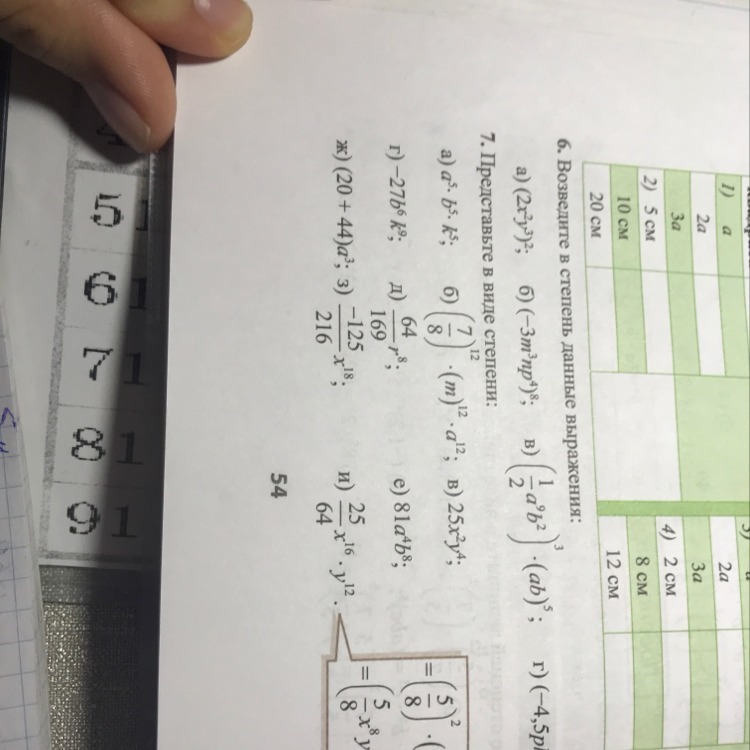 1) a
2a
3a
2) 5 см
10 см
20 см
2a
3a
4) 2 см
8 см
12 см
6. Возведите в степень данные выражения:
а) (2x²y³)²; б) (−3m³np⁴)⁸; в) (1/2 a⁹b²)³ · (ab)⁵; г) (−4,5p
7. Представьте в виде степени:
а) a⁵ · b⁵ · k⁵; б) (7/8)¹² · (m)¹² · a¹²; в) 25x²y⁴;
г) −27b⁶ k⁹; д) 64/169 r⁸; е) 81a⁴b⁸;
ж) (20 + 44)a³; з) −125/216 x¹⁸; и) 25/64 x¹⁶ · y¹².
= (5/8)² · (
= (5/8 x⁸ y
54
5 1
6 1
7 1
8 1
9 1